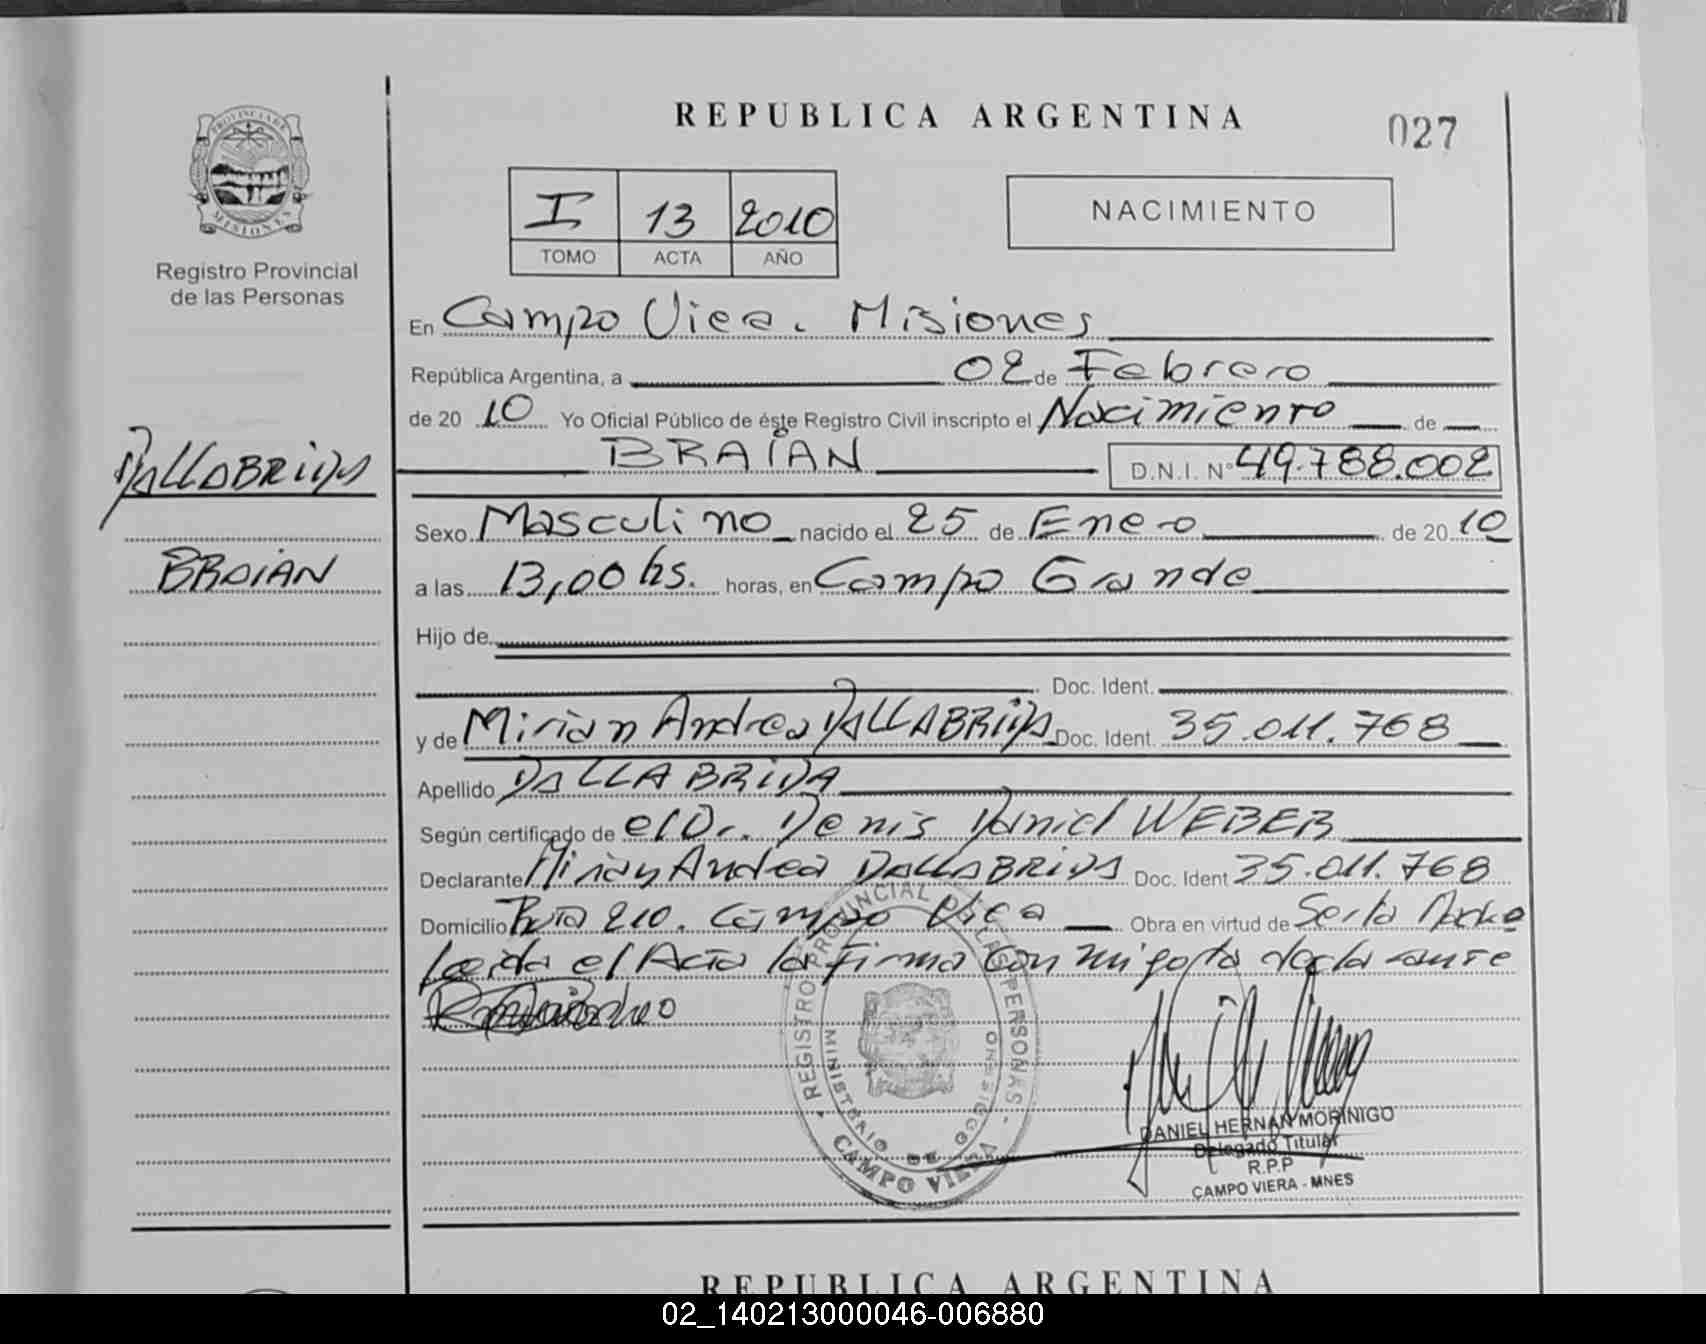 REPUBLICA ARGENTINA
027
PROVINCIA DE
MISIONES
Registro Provincial
de las Personas
I 13 2010
TOMO ACTA AÑO
NACIMIENTO
En Campo Viera. Misiones
República Argentina, a 02 de Febrero
de 20 10 Yo Oficial Público de éste Registro Civil inscripto el Nacimiento de
BRAIAN D.N.I. N° 49.788.002
DALLABRIDA
BRAIAN
Sexo Masculino nacido el 25 de Enero de 20 10
a las 13,00 hs. horas, en Campo Grande
Hijo de
Doc. Ident.
y de Mirian Andrea DALLABRIDA Doc. Ident. 35.011.768
Apellido DALLABRIDA
Según certificado de el Dr. Denis Daniel WEBER
Declarante Mirian Andrea DALLABRIDA Doc. Ident 35.011.768
Domicilio Ruta 210. Campo Viera Obra en virtud de Ser la Madre
Leida el Acta la Firma Con migo la declarante
REGISTRO PROVINCIAL DE LAS PERSONAS
MINISTERIO DE GOBIERNO
CAMPO VIERA
DANIEL HERNAN MORINIGO
Delegado Titular
R.P.P
CAMPO VIERA - MNES
REPUBLICA ARGENTINA
02_140213000046-006880